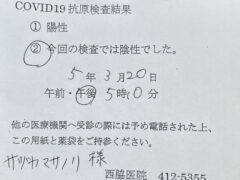 COVID19 抗原検査結果
① 陽性
② 今回の検査では陰性でした。
5 年 3 月 20 日
午前・午後 5時0分
他の医療機関へ受診の際には予め電話された上、
この用紙と薬をご持参ください。
様
西脇医院 412-5355